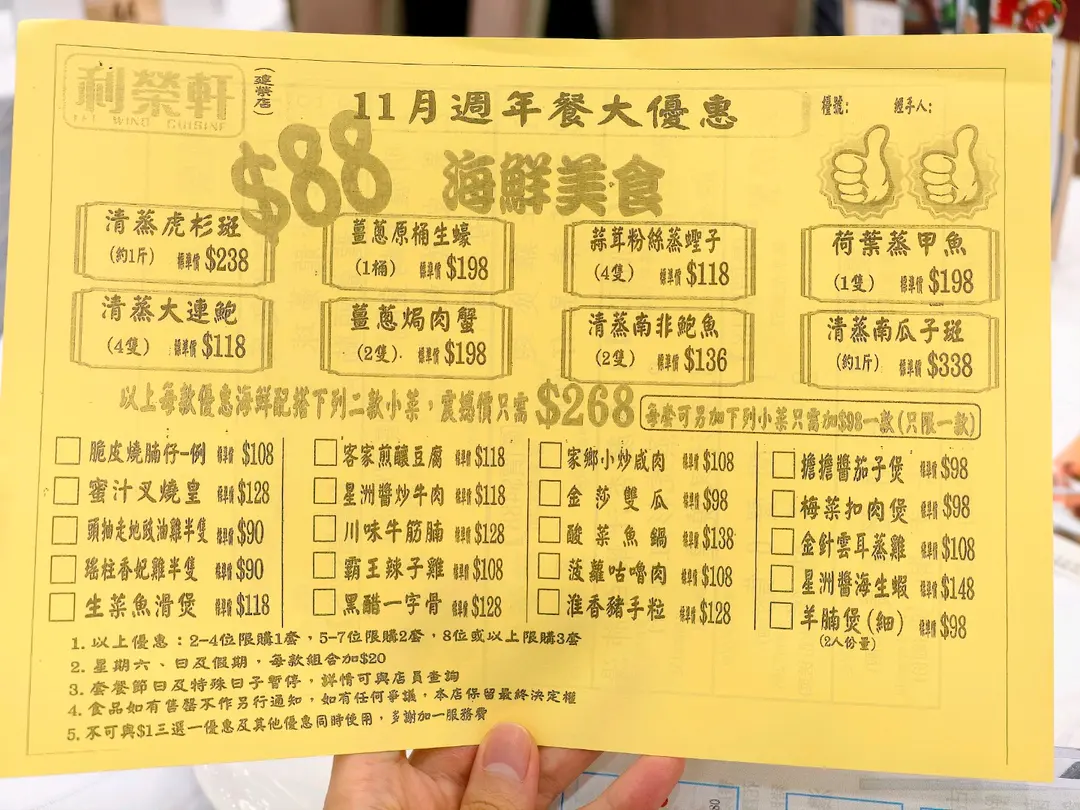 利榮軒
LEI WING CUISINE
(建榮店)
11月週年餐大優惠
檯號: 經手人:
$88 海鮮美食
清蒸虎杉斑
(約1斤) 標準價 $238
薑蔥原桶生蠔
(1桶) 標準價 $198
蒜茸粉絲蒸蟶子
(4隻) 標準價 $118
荷葉蒸甲魚
(1隻) 標準價 $198
清蒸大連鮑
(4隻) 標準價 $118
薑蔥焗肉蟹
(2隻). 標準價 $198
清蒸南非鮑魚
(2隻) 標準價 $136
清蒸南瓜子斑
(約1斤) 標準價 $338
以上每款優惠海鮮配搭下列二款小菜，震撼價只需$268
每座可另加下列小菜只需加$98一款(只限一款)
脆皮燒腩仔-例 標準價 $108
蜜汁叉燒皇 標準價 $128
頭抽走地豉油雞半隻 標準價 $90
瑤柱香妃雞半隻 標準價 $90
生菜魚滑煲 標準價 $118
客家煎釀豆腐 標準價 $118
星洲醬炒牛肉 標準價 $118
川味牛筋腩 標準價 $128
霸王辣子雞 標準價 $108
黑醋一字骨 標準價 $128
家鄉小炒咸肉 標準價 $108
金莎雙瓜 標準價 $98
酸菜魚鍋 標準價 $138
菠蘿咕嚕肉 標準價 $108
淮香豬手粒 標準價 $128
擔擔醬茄子煲 標準價 $98
梅菜扣肉煲 標準價 $98
金針雲耳蒸雞 標準價 $108
星洲醬海生蝦 標準價 $148
羊腩煲(細) 標準價 $98
(2人份量)
1. 以上優惠：2-4位限購1套，5-7位限購2套，8位或以上限購3套
2. 星期六、日及假期，每款組合加$20
3. 套餐節日及特殊日子暫停，詳情可與店員查詢
4. 食品如有售罄不作另行通知，如有任何爭議，本店保留最終決定權
5. 不可與$1三選一優惠及其他優惠同時使用，多謝加一服務費